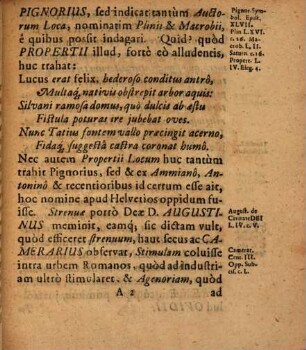 PIGNORIUS, sed indicat tantùm Aucto-
rum Loca, nominatim Plinii & Macrobii,
è quibus possit indagari. Quid? quòd
PROPERTII illud, fortè eò alludentis,
huc trahat:
Lucus erat felix, hederoso conditus antrô,
Multaq, nativis obstrepit arbor aquis:
Silvani ramosa domus, quò dulcis ab æstu
Fistula poturas ire jubebat oves.
Nunc Tatius fontem vallo præcingit acerno,
Fidaq, suggestâ castra coronat humô.
Nec autem Propertii Locum huc tantùm
trahit Pignorius, sed & ex Ammianô, An-
toninô & recentioribus id certum esse ait,
hoc nomine apud Helvetios oppidum fu-
isse. Strenuæ porrò Deæ D. AUGUSTI-
NUS meminit, eamq; sic dictam vult,
quòd efficeret strenuum, haut secus ac CA-
MERARIUS observat, Stimulam coluisse
intra urbem Romanos, quòd ad industri-
am ultrò stimularet, & Agenoriam, quòd
A 2 ad
Pignor. Sym-
bol. Epist.
XLVII.
Plin L. XVI.
c. 26. Ma-
crob. L. II.
Saturn. c. 16.
Propert. L.
IV. Eleg. 4.
August. de
Civitate DEI
L. IV. c. V.
Camerar.
Cent. III.
Opp. Sub-
cis. c. I.